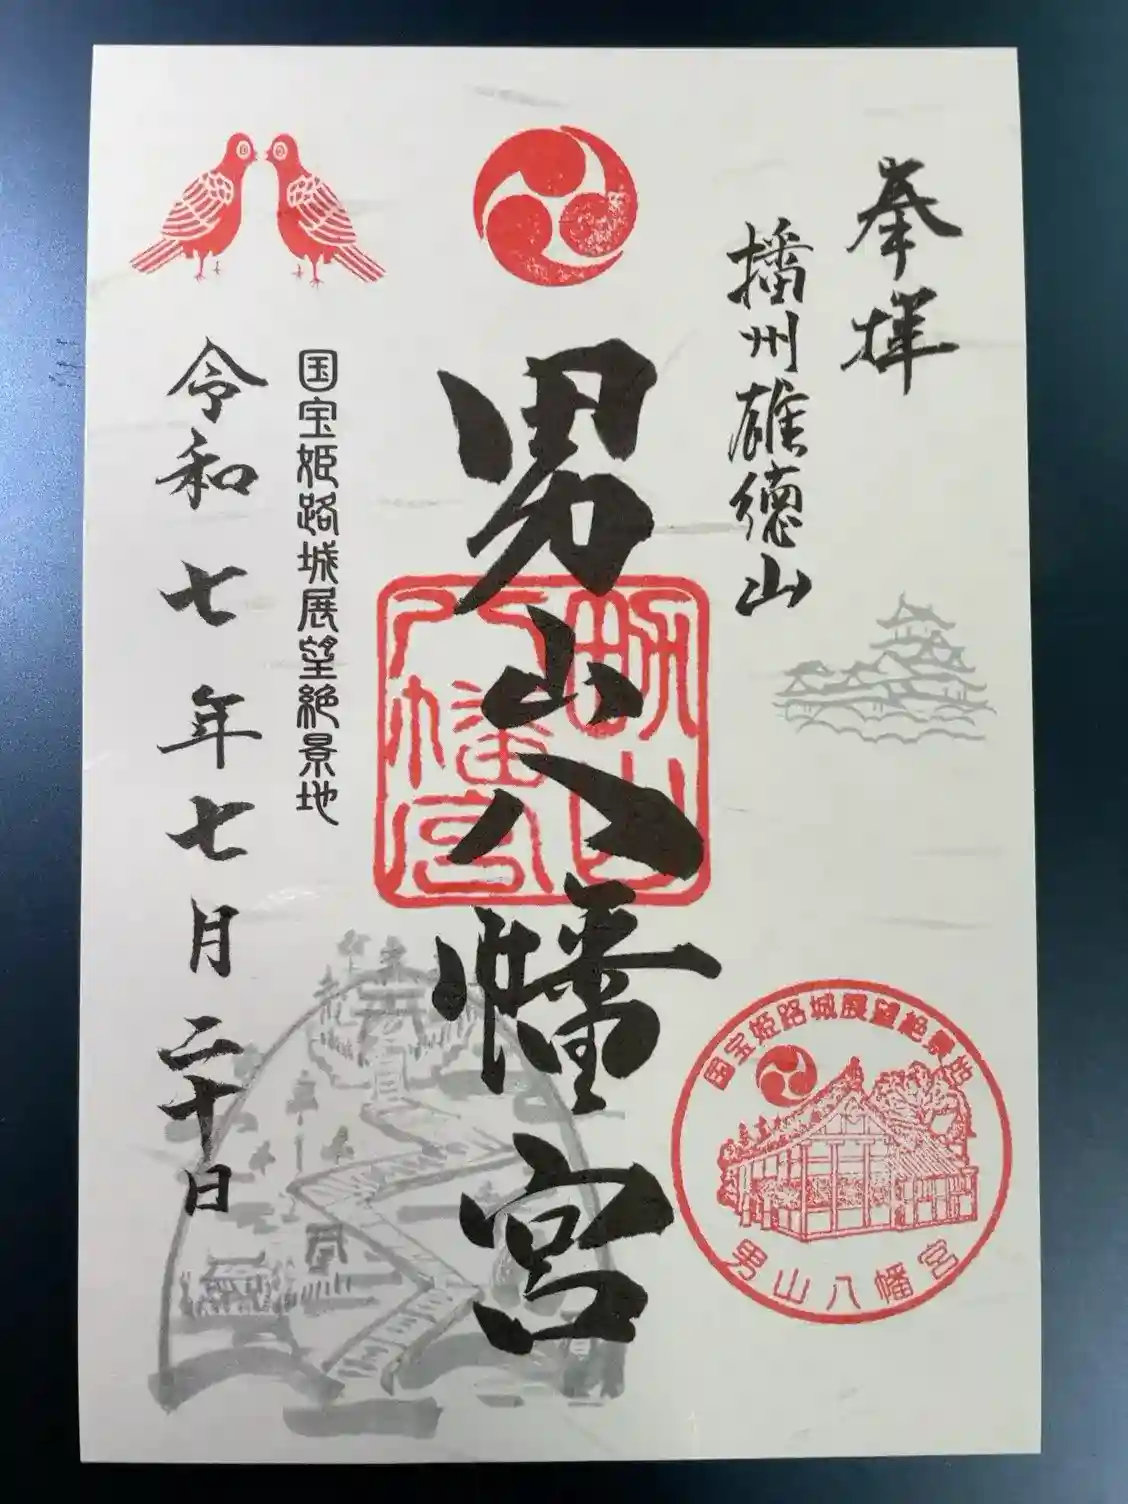 奉拝
播州雄徳山
男山八幡宮
男山
八幡宮
国宝姫路城展望絶景地
令和七年七月二十日
国宝姫路城展望絶景地
男山八幡宮